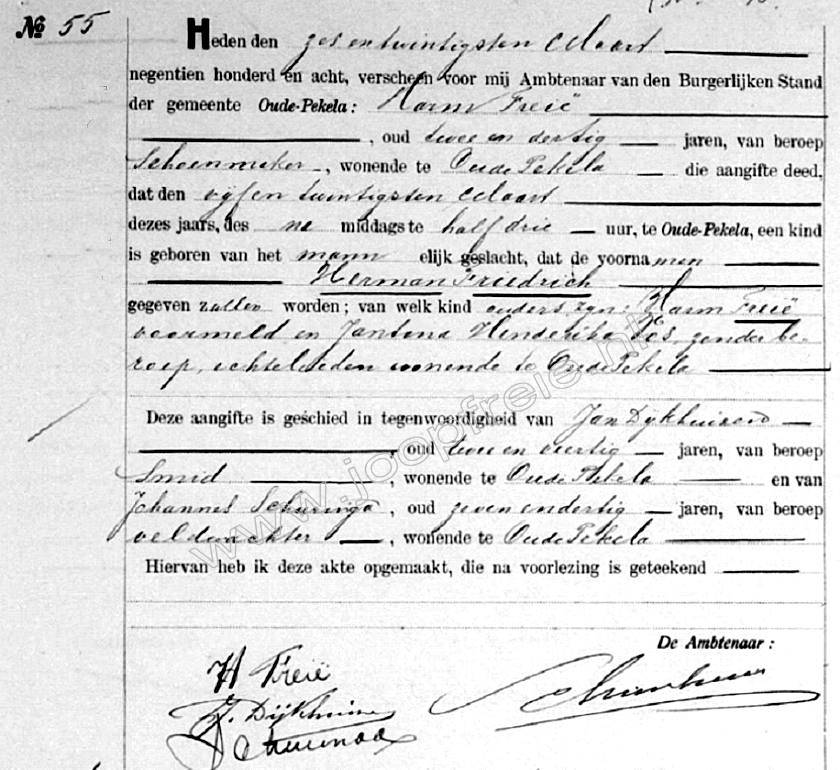 № 55
Heden den zes en twintigsten Maart
negentien honderd en acht, verscheen voor mij Ambtenaar van den Burgerlijken Stand
der gemeente Oude-Pekela: Harm Freië
, oud twee en dertig jaren, van beroep
Schoenmaker, wonende te Oude Pekela die aangifte deed,
dat den vijfen twintigsten Maart
dezes jaars, des na middags te half drie uur, te Oude-Pekela, een kind
is geboren van het mann elijk geslacht, dat de voorna men
Herman Friedrich
gegeven zullen worden; van welk kind ouders zijn: Harm Freië
voormeld en Jantina Hinderika Vos, zonder be-
roep, echtelieden wonende te Oude Pekela
Deze aangifte is geschied in tegenwoordigheid van Jan Dijkhuizen
, oud twee en veertig jaren, van beroep
Smid, wonende te Oude Pekela en van
Johannes Schuringa, oud zeven endertig jaren, van beroep
veldwachter, wonende te Oude Pekela
Hiervan heb ik deze akte opgemaakt, die na voorlezing is geteekend
De Ambtenaar:
H Freië
J. Dijkhuizen
www.joopfreie.nl